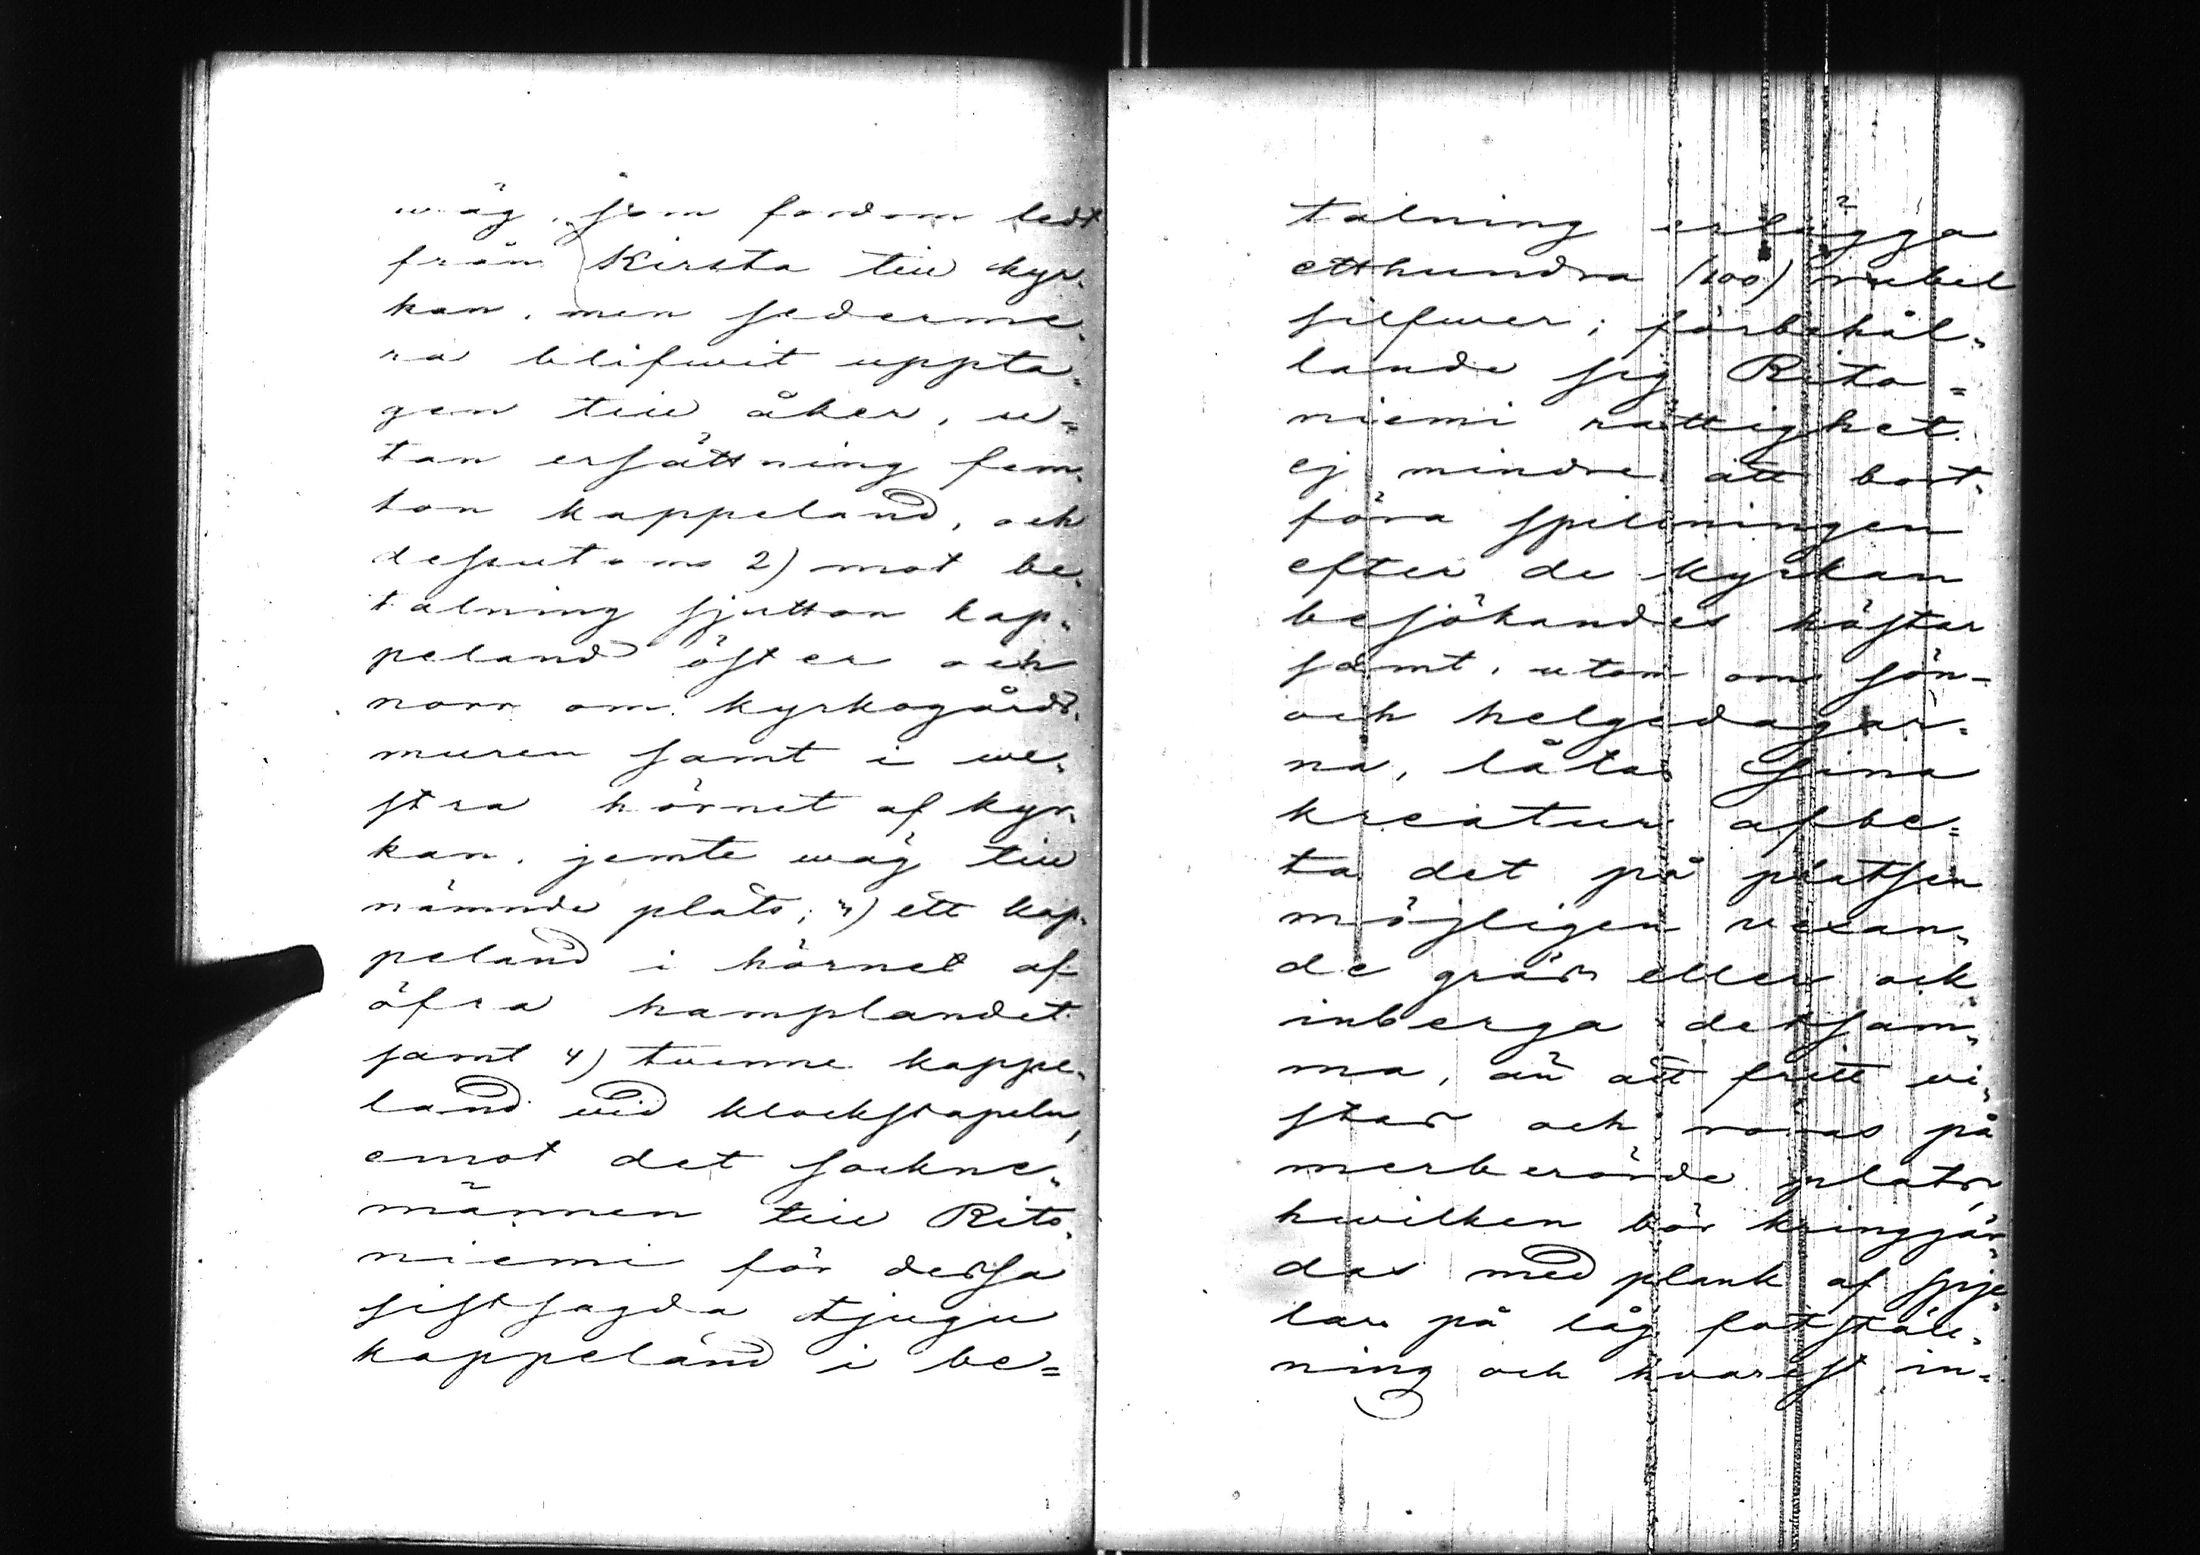 wäg, som fordom ledt
från Kirsta till kyr„
kan, men sederme„
ra blifwit uppta„
gen till åker, u=
tan ersättning fem„
ton kappeland, och
dessutom 2) mot be„
talning sjutton kap„
peland öster och
norr om kyrkogårds„
muren samt i we„
stra hörnet af kyr„
kan, jemte wäg till
nämnde plats; 3) ett kap„
peland i hörnet af
öfra hamplandet
samt 4) tvenne kappe„
land vid klockstapeln,
emot det sockne„
männen till Rito„
niemi för dessa
sistsagda tjugu
kappeland i be=
talning erlägga
etthundra (100) rubel
silfwer; förbehål„
lande sig Rito=
niemi rättighet
ej mindre att bort„
föra spillningen
efter de kyrkan
besökandes hästar
samt, utom om sön-
och helgedagar„
na, låta sina
kreatur afbe=
ta det på platsen
möjligen växan„
de gräs eller ock
inberga detsam„
ma, än att fritt vi„
stas och röras på
merberörde plats,
hwilken bör kringgär„
das med plank af spje„
lar på låg fotställ„
ning och hvarest in„